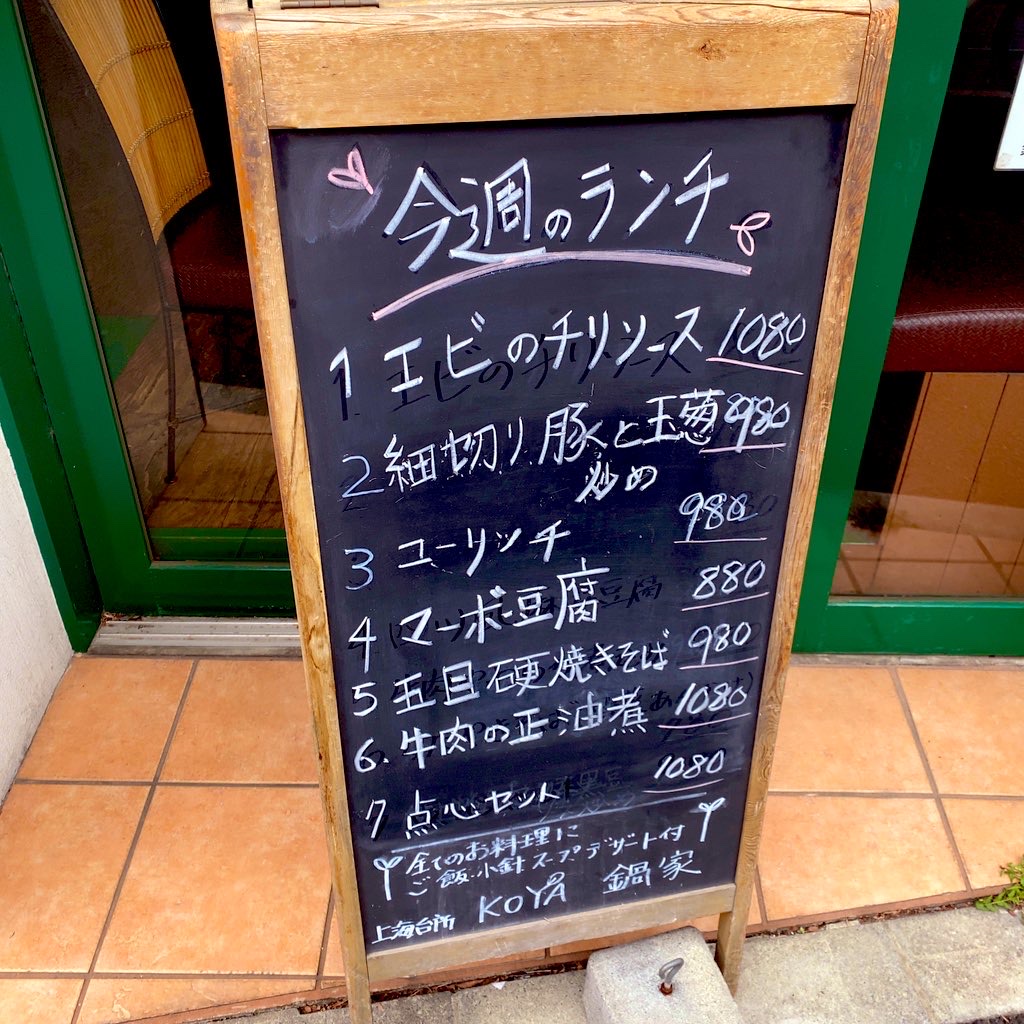 今週のランチ
1 エビのチリソース 1080
2 細切り豚と玉葱 980
炒め
3 ユーリンチ 980
4 マーボ豆腐 880
5 五目硬焼きそば 980
6. 牛肉の正油煮 1080
7 点心セット 1080
全てのお料理に
ご飯・小針スープデザート付
上海台所 KOYA 鍋家